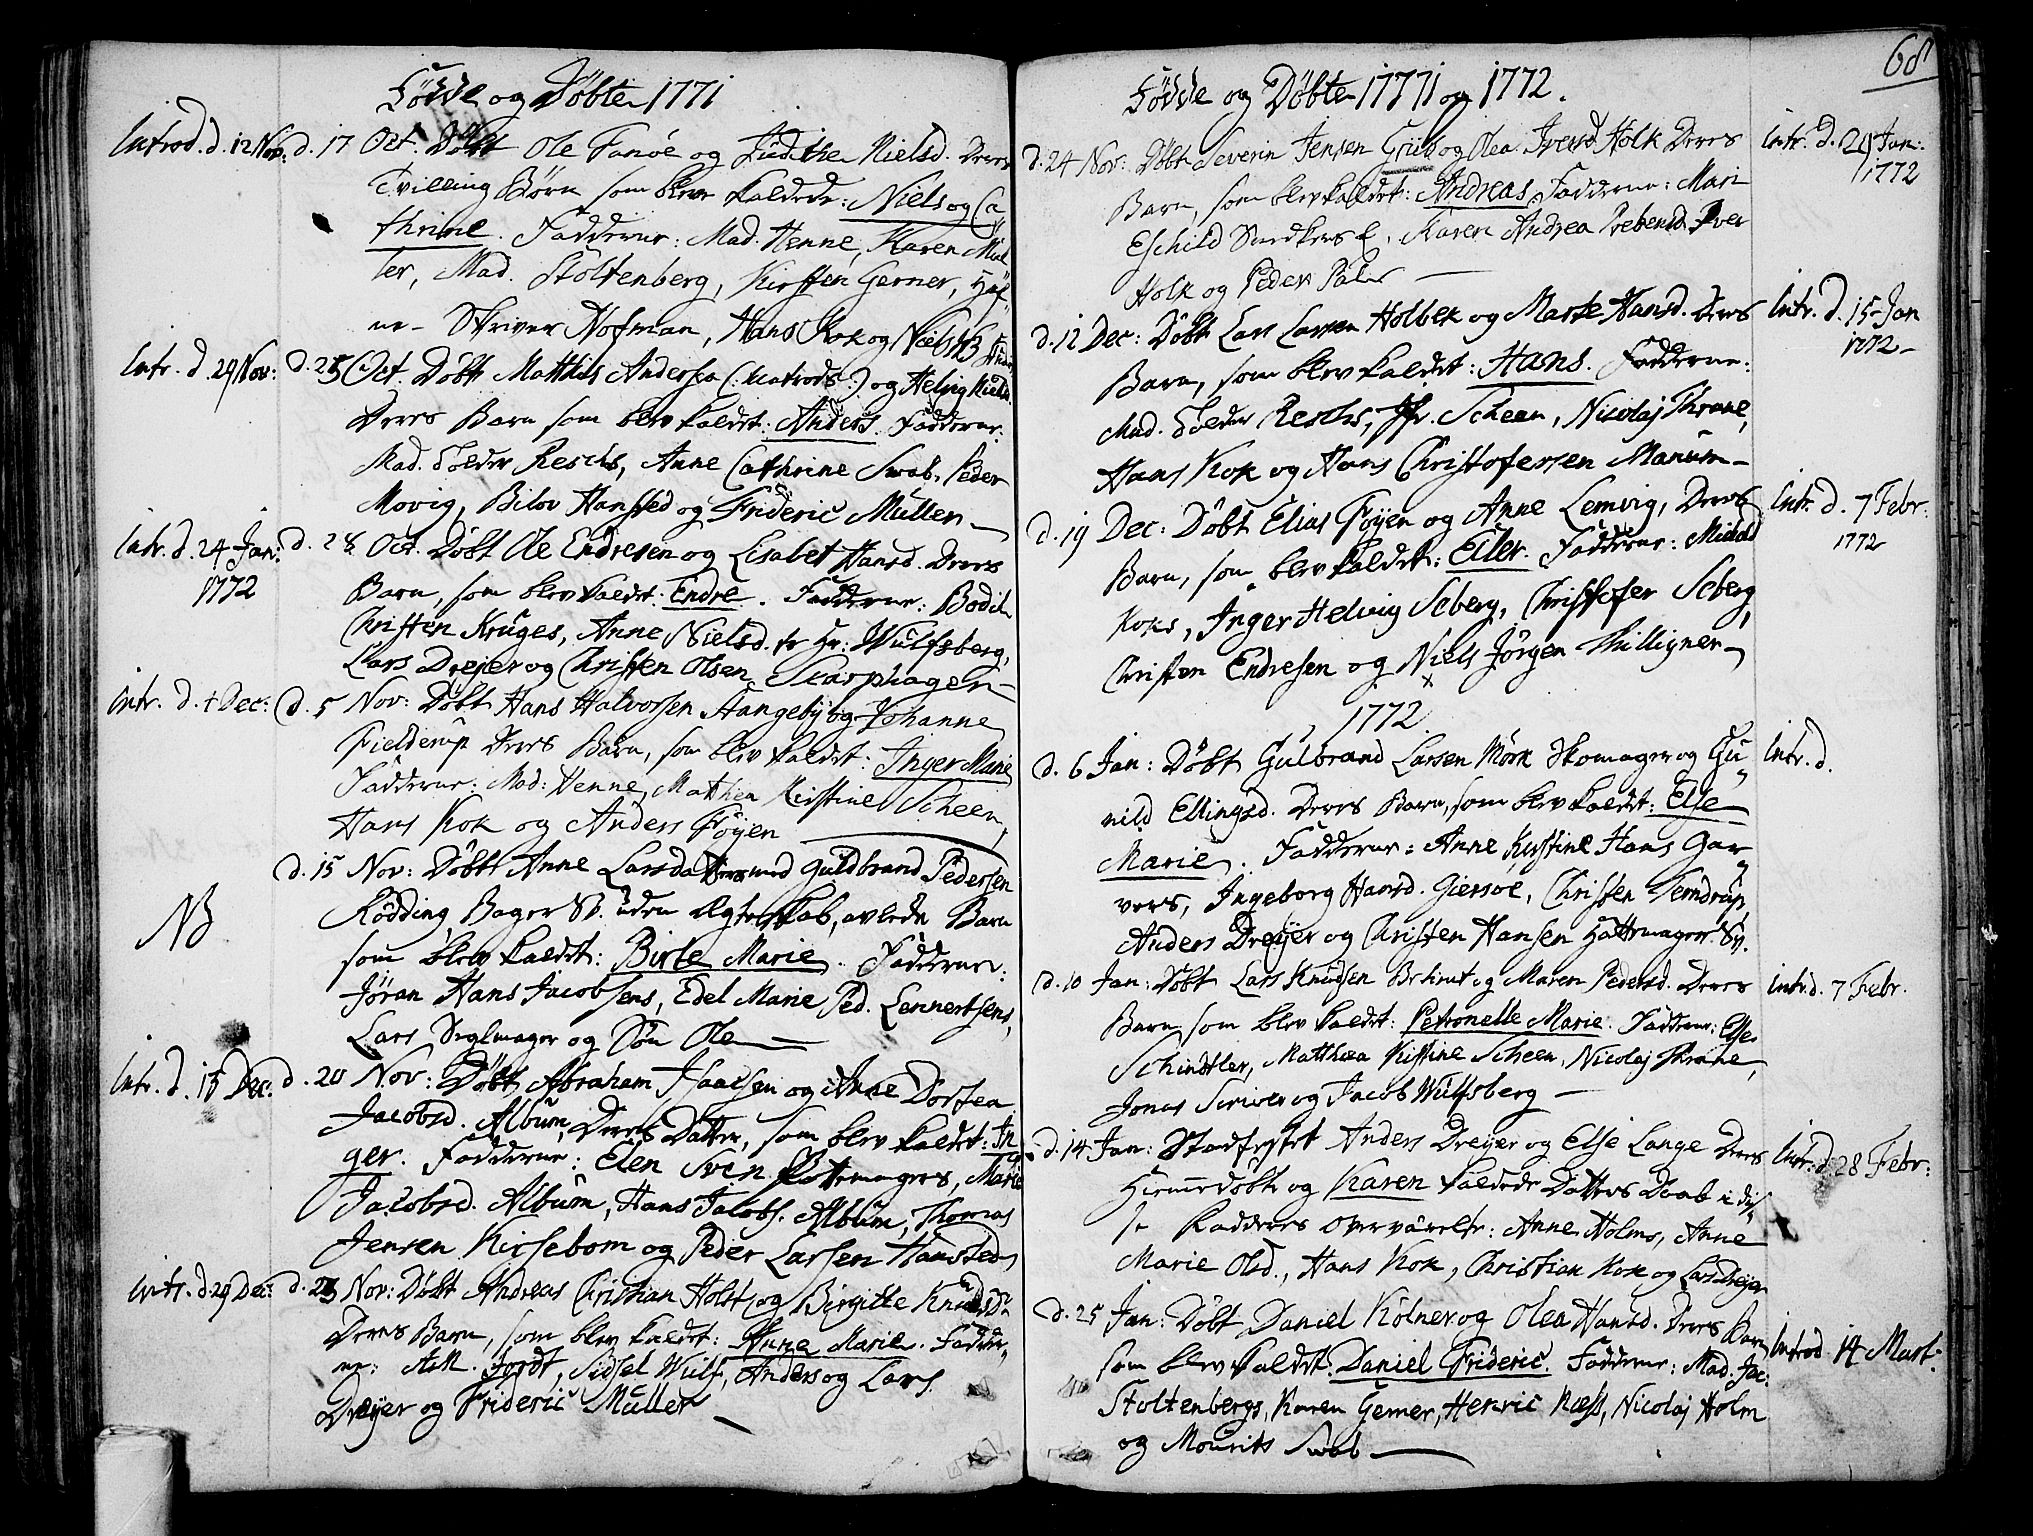 Födde og Döbte 1771
Introd. d. 12 Nov: d. 17 Oct. Döbt Ole Fanöe og Judithe Nielsd. Deres
Tvilling Börn som bleve kaldede: Niels og Ca
thrine. Fadderne: Mad. Henne, Karen Mül
ler, Mad. Stoltenberg, Kirsten Gerner, Haf
ne Skriver Hofman, Hans Kok og Niels
Intr. d. 29 Nov: d. 25 Oct. Döbt Matthis Andersen (: Matros :) og Helvig Nielsd.
Deres Barn som blev kaldet: Anders. Fadderne:
Mad. Tolder Reschs, Anne Cathrine Swab, Peder
Movig, Bilov Hansted og Frideric Müller
Intr. d. 24 Jan: d. 28 Oct. Döbt Ole Endresen og Lisabet Hansd. Deres
1772
Barn, som blev kaldet: Endre. Fadderne: Bodil
Christen Krüges, Anne Nielsd. fr Hr: Wulfsberg,
Lars Drejer og Christen Olsen Skarphagen
Intr. d. 4 Dec: d. 5 Nov: Döbt Hans Halvorsen Aangeby og Johanne
Fielderup Deres Barn, som blev kaldet: Inger Marie
Fadderne: Mad: Henne, Mathea Kirstine Scheen,
Hans Kok og Anders Föyen
d. 15 Nov: Döbt Anne Larsdatters med Guldbrand Pedersen
NB
Rödding Bager Sv. uden Ægteskab, avlede Barn
som blev kaldet: Birte Marie. Fadderne:
Jöran Hans Jacobsens, Edel Marie Ped. Lennertsens,
Lars Seglmager og Sön Ole
Intr. d. 15 Dec. d. 20 Nov: Döbt Abraham Isaacsen og Anne Dortea
Jacobsd. Album, Deres Datter, som blev kaldet: In
ger. Fadderne: Elen Sven Pottemagers, Marie
Jacobsd. Album, Hans Jacobs. Album, Thomas
Jensen Kirsebom og Peder Larsen Hansted
Intr. d. 29 Dec: d. 23 Nov: Döbt Andreas Christian Holst og Birgitte Knudsd.
Deres Barn, som blev kaldet: Anne Marie. Fadder
ne: Ask. Jordt, Sidsel Wulf, Anders og Lars
Dreyer og Frideric Müller
68
Födde og Döbte 1771 og 1772.
d. 24 Nov: Döbt Severin Jensen Grüb og Olea Iversd Holk Deres Intr. d. 29 Jan:
1772
Barn, som blev kaldet: Andreas Fadderne: Mari
Eschild Snedkers E, Karen Andrea Prebensd. Iver
Holk og Peder Palm
d. 12 Dec: Döbt Lars Larsen Holbek og Marte Hansd. Deres Intr. d. 15 Jan
1772
Barn, som blev kaldet: Hans. Fadderne:
Mad. Tolder Reschs, Jfr. Scheen, Nicolaj Thrane,
Hans Kok og Hans Christofersen Manum
d. 19 Dec: Döbt Elias Föyen og Anne Lemvig, Deres Intr. d. 7 Febr.
1772
Barn, som blev kaldet: Eiler. Fadderne:
Koks, Inger Helvig Seberg, Christofer Seberg,
Christen Endresen og Niels Jörgen Thilligner
1772
d. 6 Jan: Döbt Gulbrand Larsen Mörk Skomager og Gu Intr. d.
nild Ellingsd. Deres Barn, som blev kaldet: Else
Marie. Fadderne: Anne Kirstine Hans Gar
vers, Ingeborg Hansd. Giersöe, Christen Terndrup,
Anders Dreyer og Christen Hansen Hattemager Sv.
d. 10 Jan: Döbt Lars Knudsen og Maren Pedersd. Deres Intr. d. 7 Febr.
Barn, som blev kaldet: Petronelle Marie. Fadderne: Else
Schindtler, Matthea Kistine Scheen, Nicolaj Thrane,
Jonas Scriver og Jacob Wulfsberg
d. 14 Jan: Stadfestet Anders Dreyer og Else Lange Deres Intr. d. 28 Febr:
Hiemmedöbte og Karen kaldede Datters Daab i dis
se Fadderes Overværelse: Anne Holms, Anne
Marie Olsd., Hans Kok, Christian Kok og Lars Dreyer
d. 25 Jan: Döbt Daniel Kölner og Olea Hansd. Deres Barn Introd. 14 Mart:
som blev kaldet Daniel Frideric. Fadderne: Mad. Jac:
Stoltenbergs, Karen Gerner, Henric Næss, Nicolaj Holm
og Mourits Swab